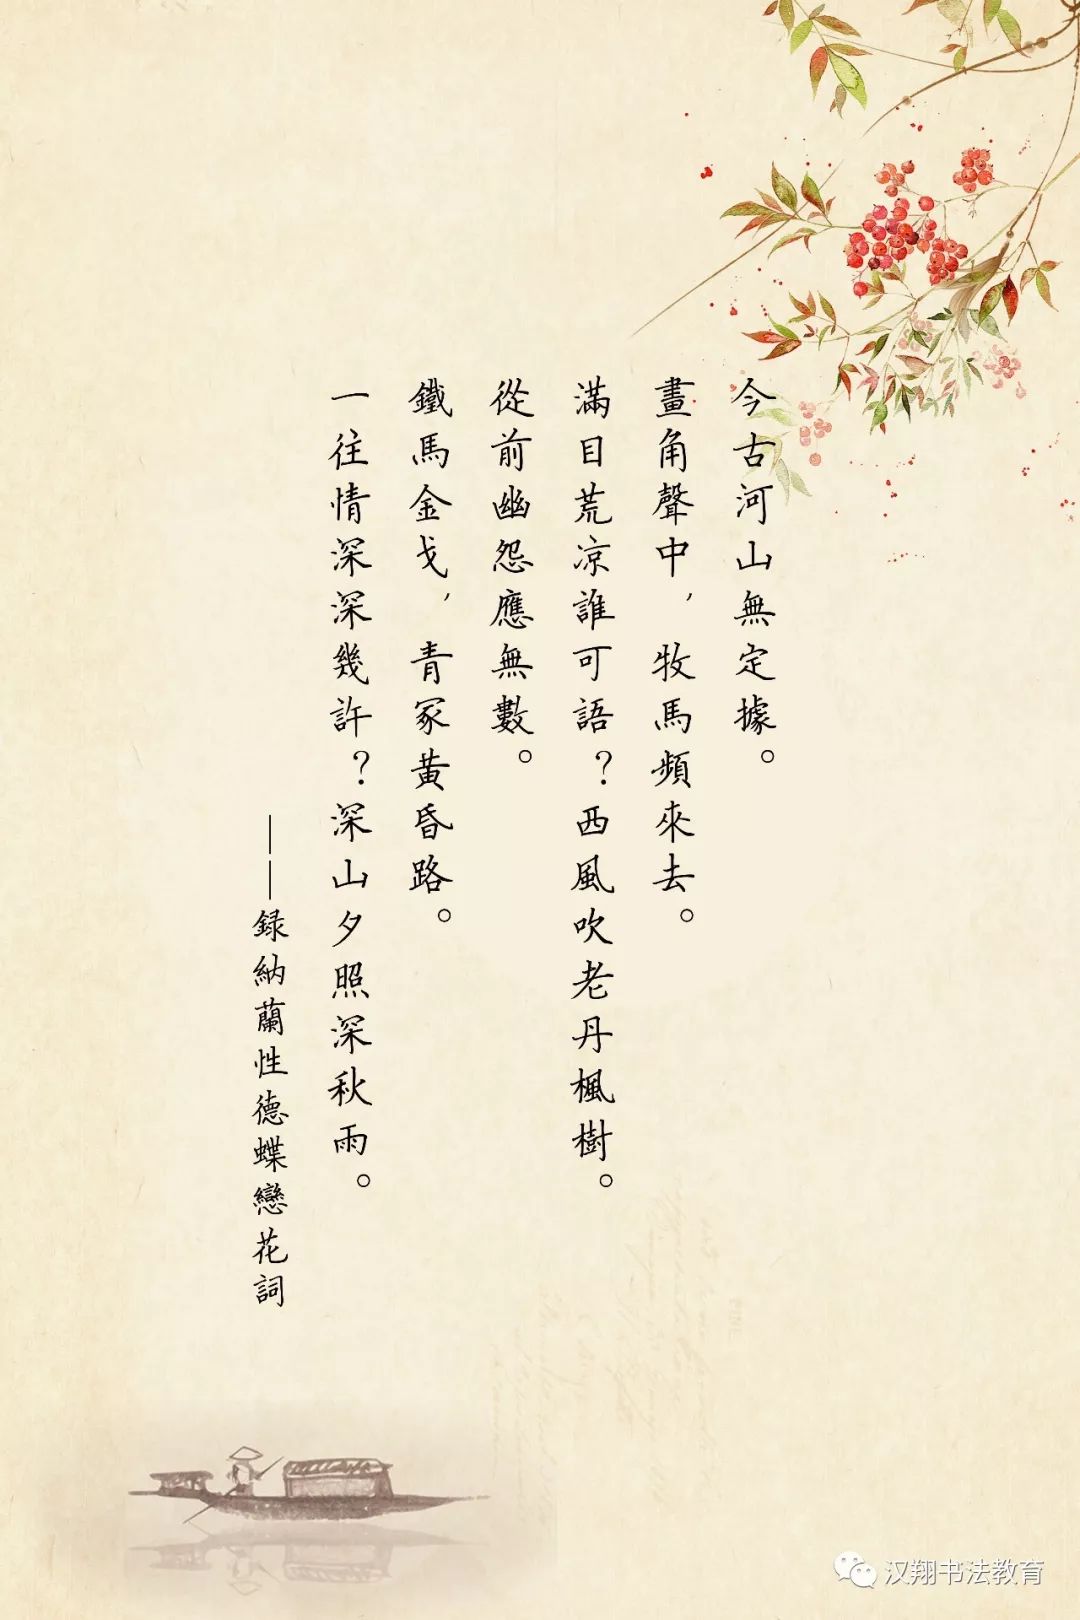 今古河山無定據。
畫角聲中，牧馬頻來去。
滿目荒凉誰可語？西風吹老丹楓樹。
從前幽怨應無數。
鐵馬金戈，青冢黄昏路。
一往情深深幾許？深山夕照深秋雨。
——録納蘭性德蝶戀花詞
汉翔书法教育